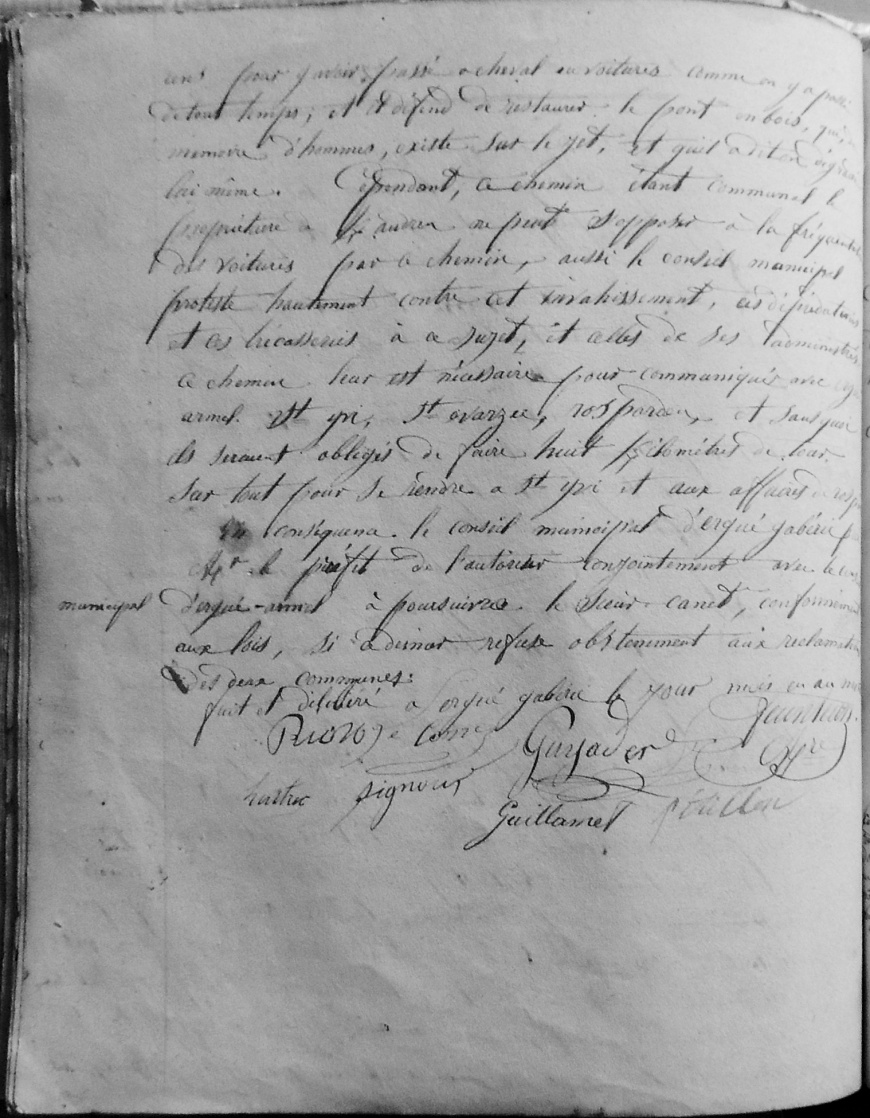 uns pour y avoir passé a cheval ou voitures comme on y a passé
de tout temps; et il défend de restaurer le pont en bois, qui,
memoire d'hommes, existe sur le jet, et qu'il a
lui même. Cependant, ce chemin étant communal le
propriétaire de ne peut s'opposer à la fréquenta
des voitures par ce chemin, aussi le conseil municipal
proteste hautement contre cet envahissement, ces déprédations
et ces tricasseries à ce sujet, et celles de ses administrés
ce chemin leur est nécessaire pour communiquer avec ergué
armel. St yvi, St evarzec, rosporden, et sans quoi
ils seraient obligés de faire huit kilomètres de
sur tout pour se rendre a St yvi et aux affaires de rosp
En conséquence le conseil municipal d'ergué gabéric
Mr le préfet de l'autoriser conjointement avec le cons
municipal d'ergué-armel à poursuivre le sieur canet, conformément
aux lois, si ce dernier refuse obstinément aux reclamations
des deux communes:
fait et délibéré a Lergué gabéric le jour mois en an
Riou Guyader
signour
Guillamet